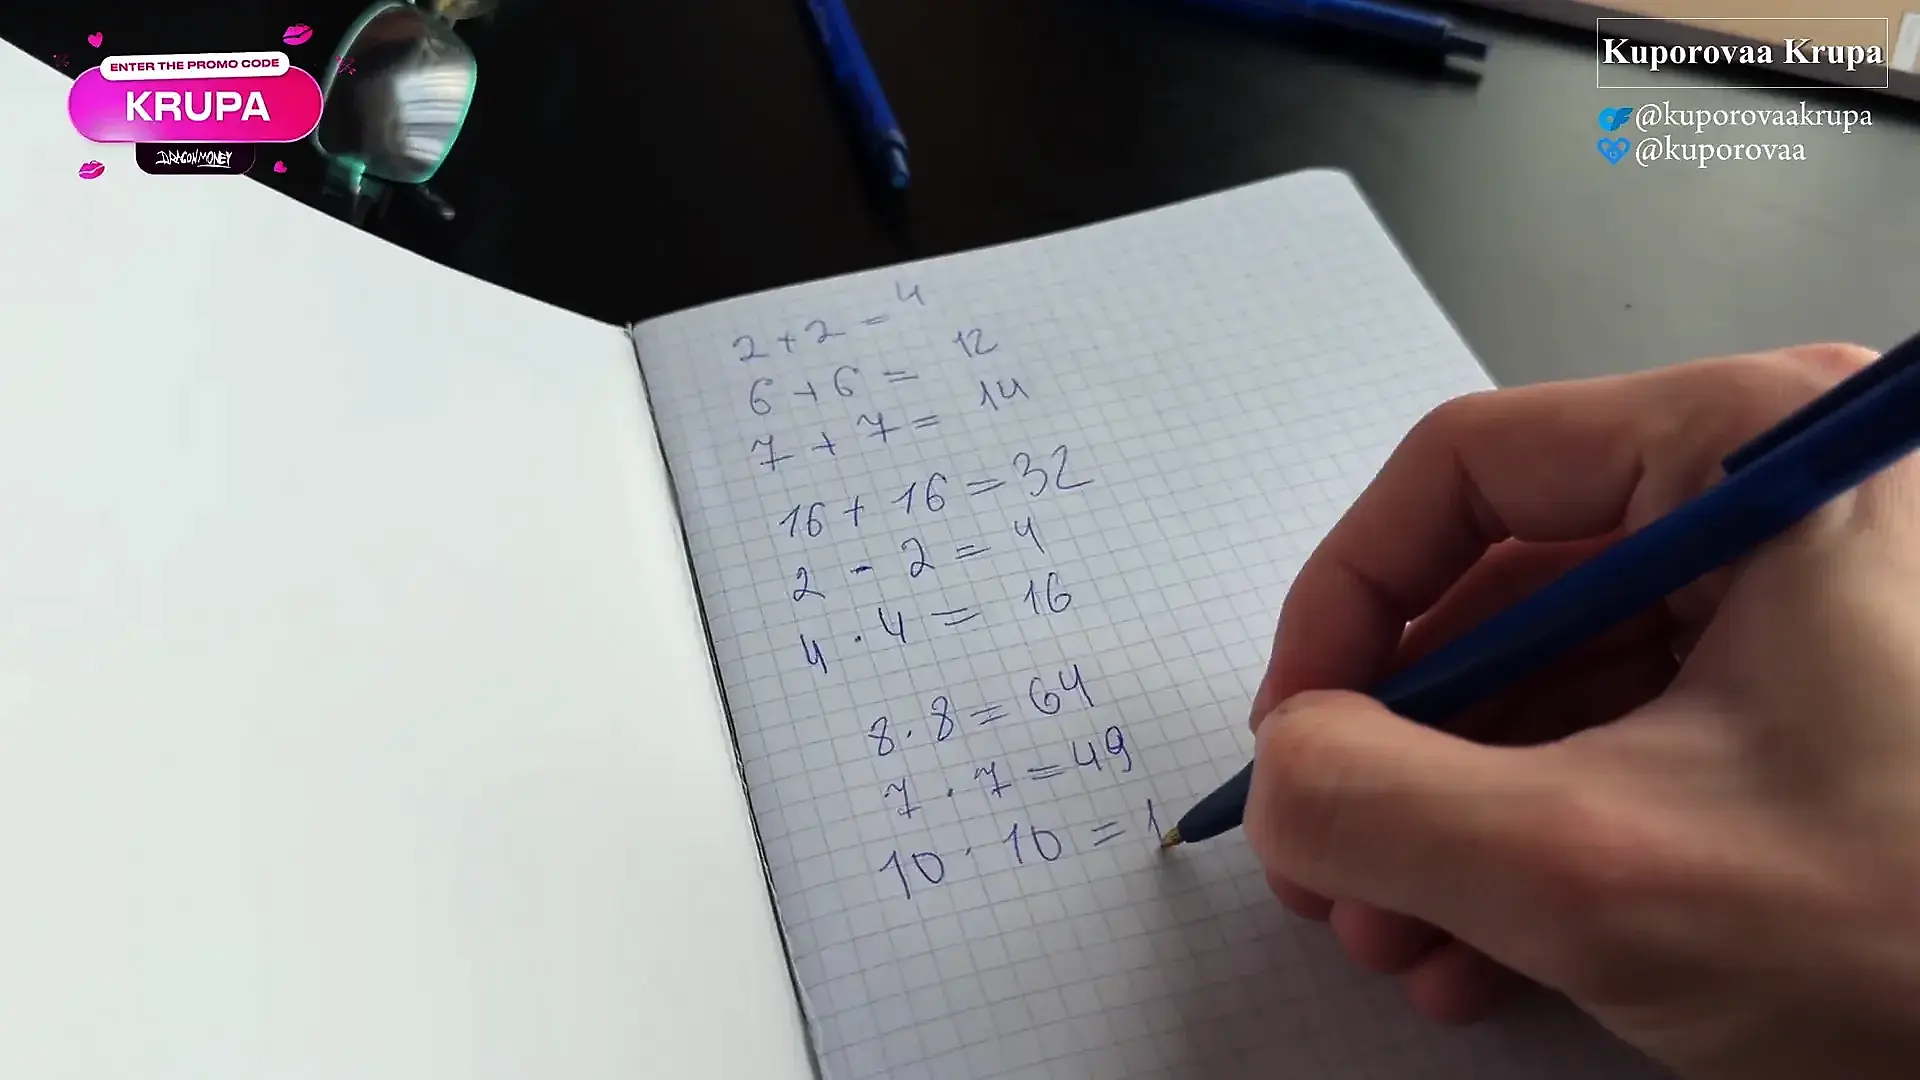 ENTER THE PROMO CODE
KRUPA
DRAGONMONEY
Kuporovaa Krupa
@kuporovaakrupa
@kuporovaa
2 + 2 = 4
6 + 6 = 12
7 + 7 = 14
16 + 16 = 32
2 - 2 = 4
4 · 4 = 16
8 · 8 = 64
7 · 7 = 49
10 · 10 = 1